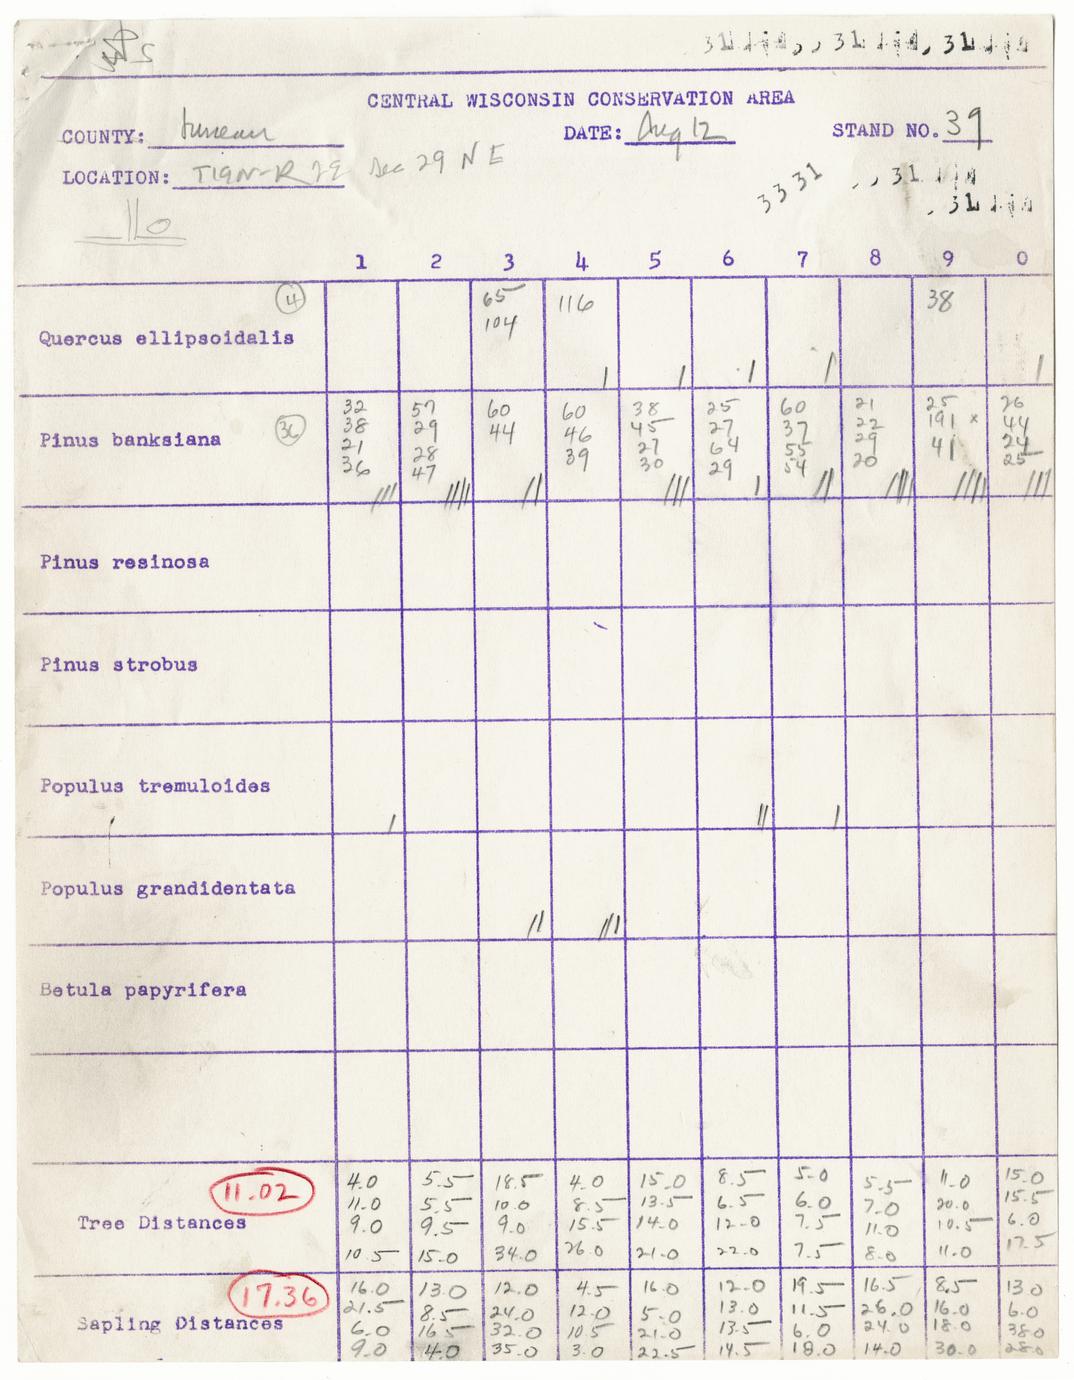 CENTRAL WISCONSIN CONSERVATION AREA
COUNTY: Juneau DATE: Aug 12 STAND NO. 39
LOCATION: T19N-R 2E Sec 29 NE
3331
110
1 2 3 4 5 6 7 8 9 0
4 65 116 38
104
Quercus ellipsoidalis
| | | | |
32 57 60 60 38 25 60 21 25 26
38 29 44 46 45 27 37 22 191 x 44
Pinus banksiana 36
21 28 39 27 64 55 29 41 24
36 47 30 29 54 20 25
/// //// // /// | // //// //// ///
Pinus resinosa
Pinus strobus
Populus tremuloides
| || |
Populus grandidentata
|| |||
Betula papyrifera
11.02 4.0 5.5 18.5 4.0 15.0 8.5 5.0 5.5 11.0 15.0
11.0 5.5 10.0 8.5 13.5 6.5 6.0 7.0 20.0 15.5
Tree Distances 9.0 9.5 9.0 15.5 14.0 12.0 7.5 11.0 10.5 6.0
10.5 15.0 34.0 26.0 21.0 22.0 7.5 8.0 11.0 17.5
17.36 16.0 13.0 12.0 4.5 16.0 12.0 19.5 16.5 8.5 13.0
21.5 8.5 24.0 12.0 5.0 13.0 11.5 26.0 16.0 6.0
Sapling Distances 6.0 16.5 32.0 10.5 21.0 13.5 6.0 24.0 18.0 38.0
9.0 4.0 35.0 3.0 22.5 14.5 18.0 14.0 30.0 28.0